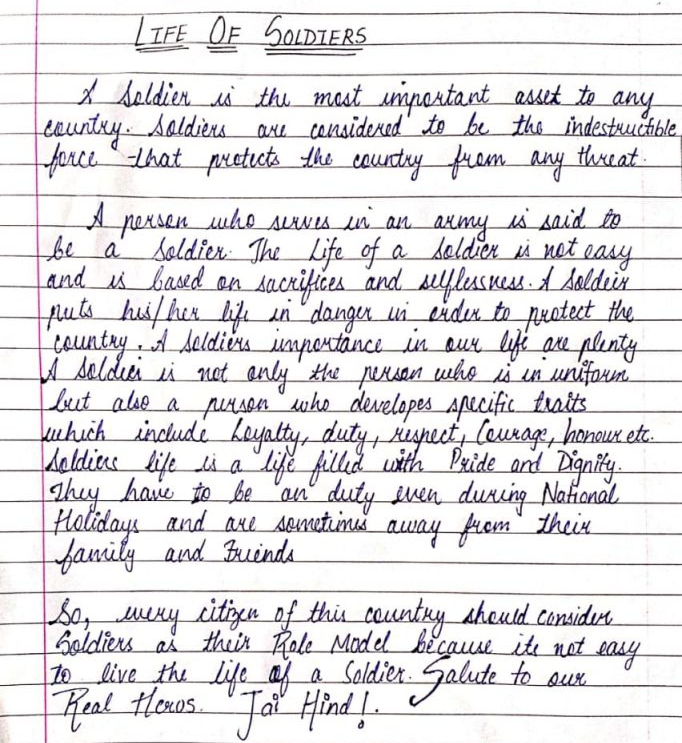 LIFE OF SOLDIERS
A Soldier is the most important asset to any
country. Soldiers are considered to be the indestructible
force that protects the country from any threat.
A person who serves in an army is said to
be a Soldier. The Life of a Soldier is not easy
and is based on sacrifices and selflessness. A Soldeir
puts his/her life in danger in order to protect the
country. A Soldiers importance in our life are plenty
A Soldier is not only the person who is in uniform
but also a person who developes specific traits
which include Loyalty, duty, respect, Courage, honour etc.
Soldiers life is a life filled with Pride and Dignity.
They have to be on duty even during National
Holidays and are sometimes away from their
family and Friends
So, every citizen of this country should consider
Soldiers as their Role Model because its not easy
to live the life of a Soldier. Salute to our
Real Heros. Jai Hind!.